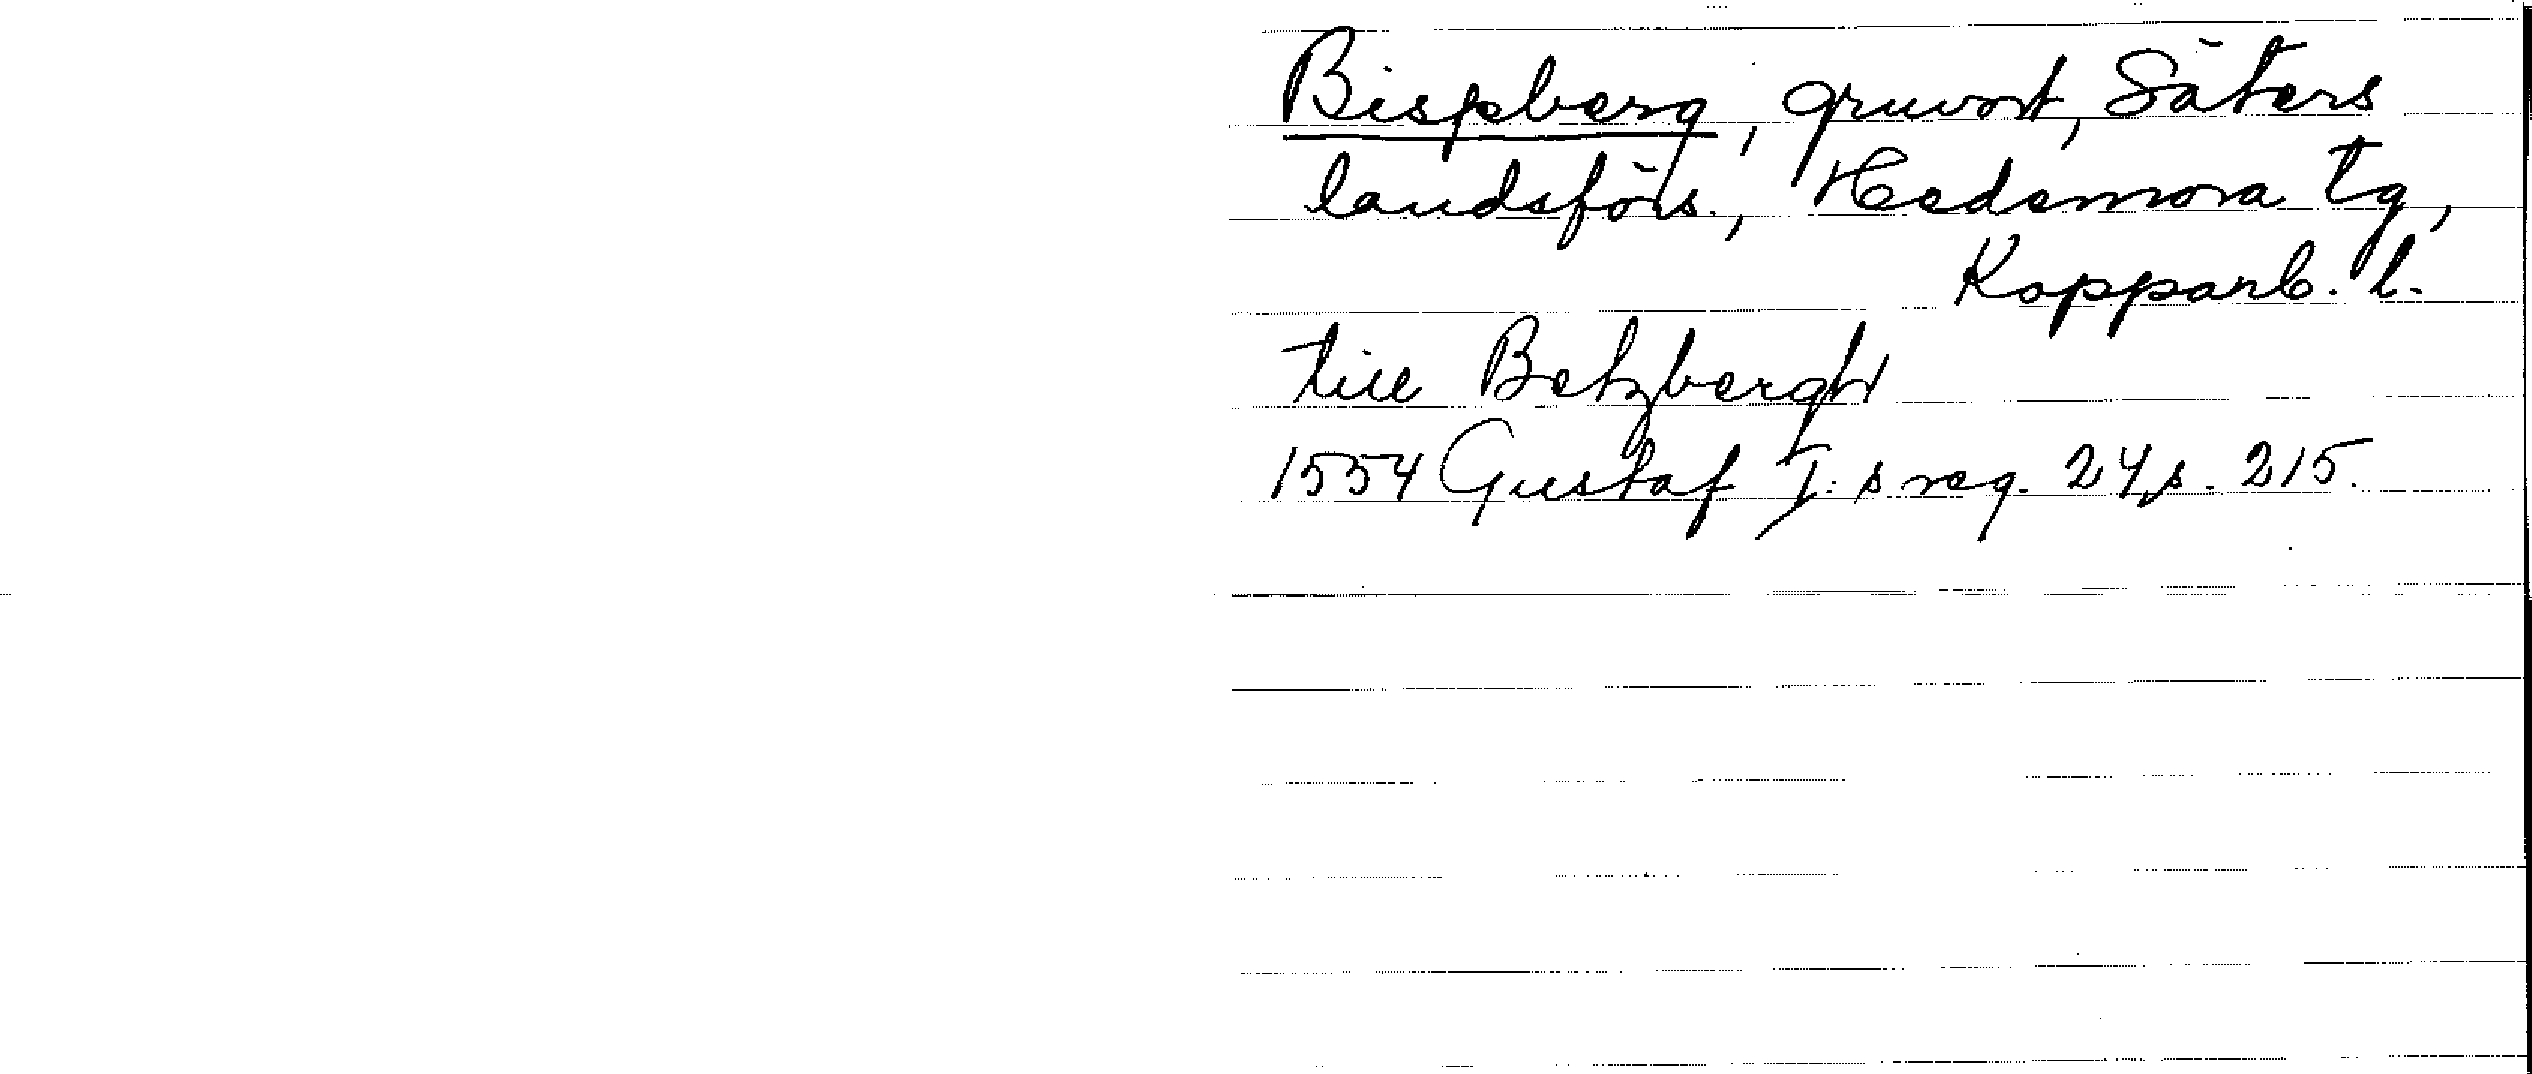 Bispberg, gruvort, Säters
landsförs., Hedemora tg,
Kopparb. l.
till Betzbergh
1554 Gustaf I:s reg. 24, s. 215.